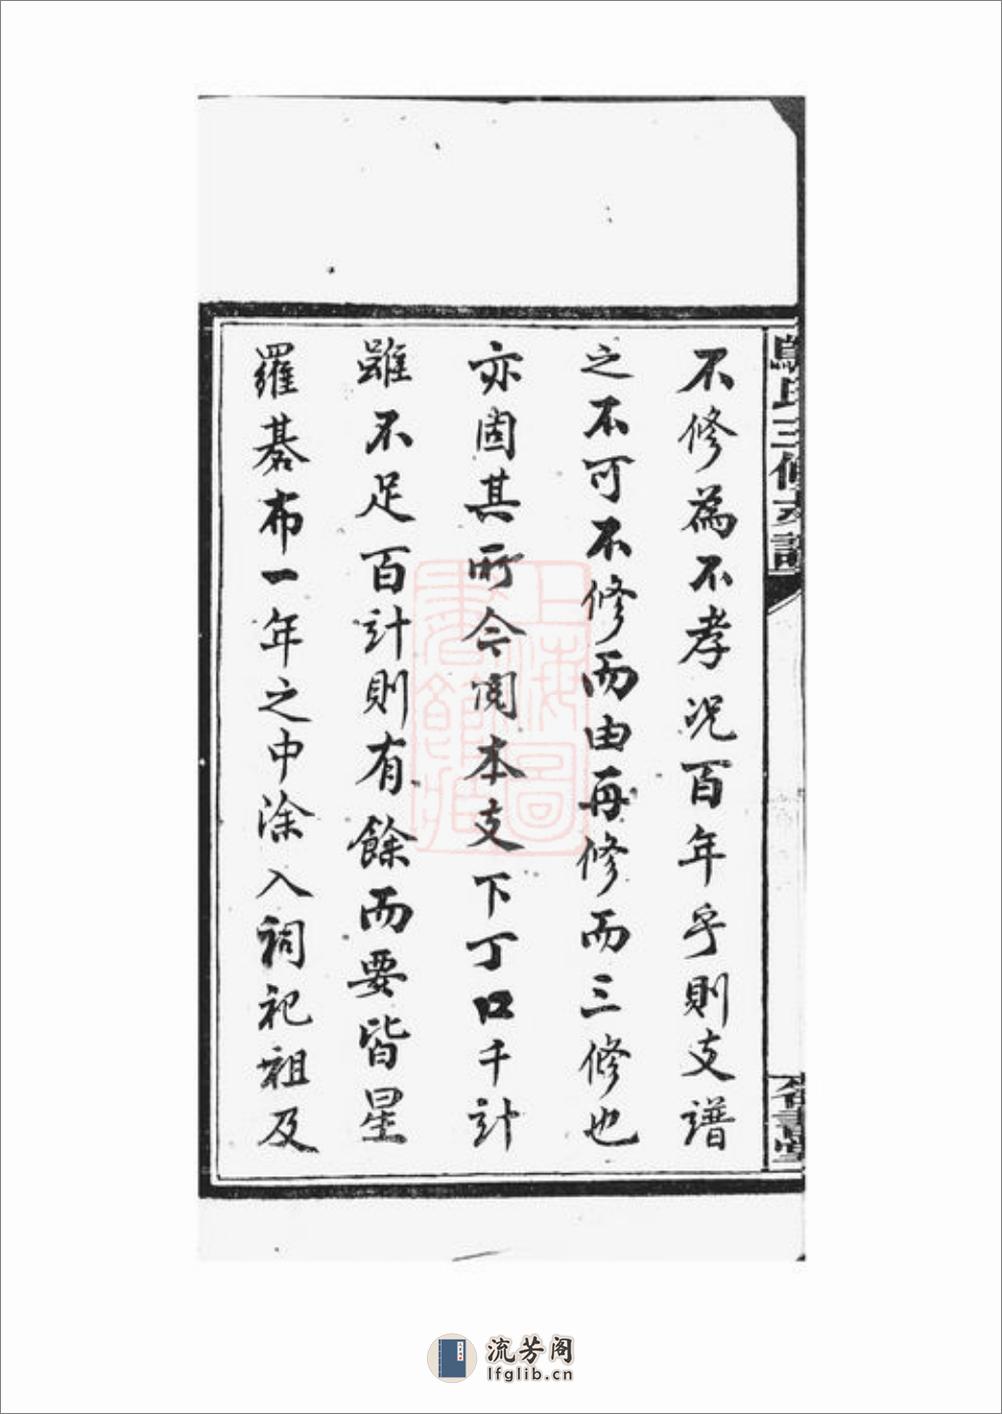 不修為不孝況百年乎則支譜
之不可不修而由再修而三修也
亦固其所今閱本支下丁口千計
雖不足百計則有餘而要皆星
羅碁布一年之中涂入祠祀祖及
氏三修支譜
上海圖書館藏
流芳阁
lfglib.cn